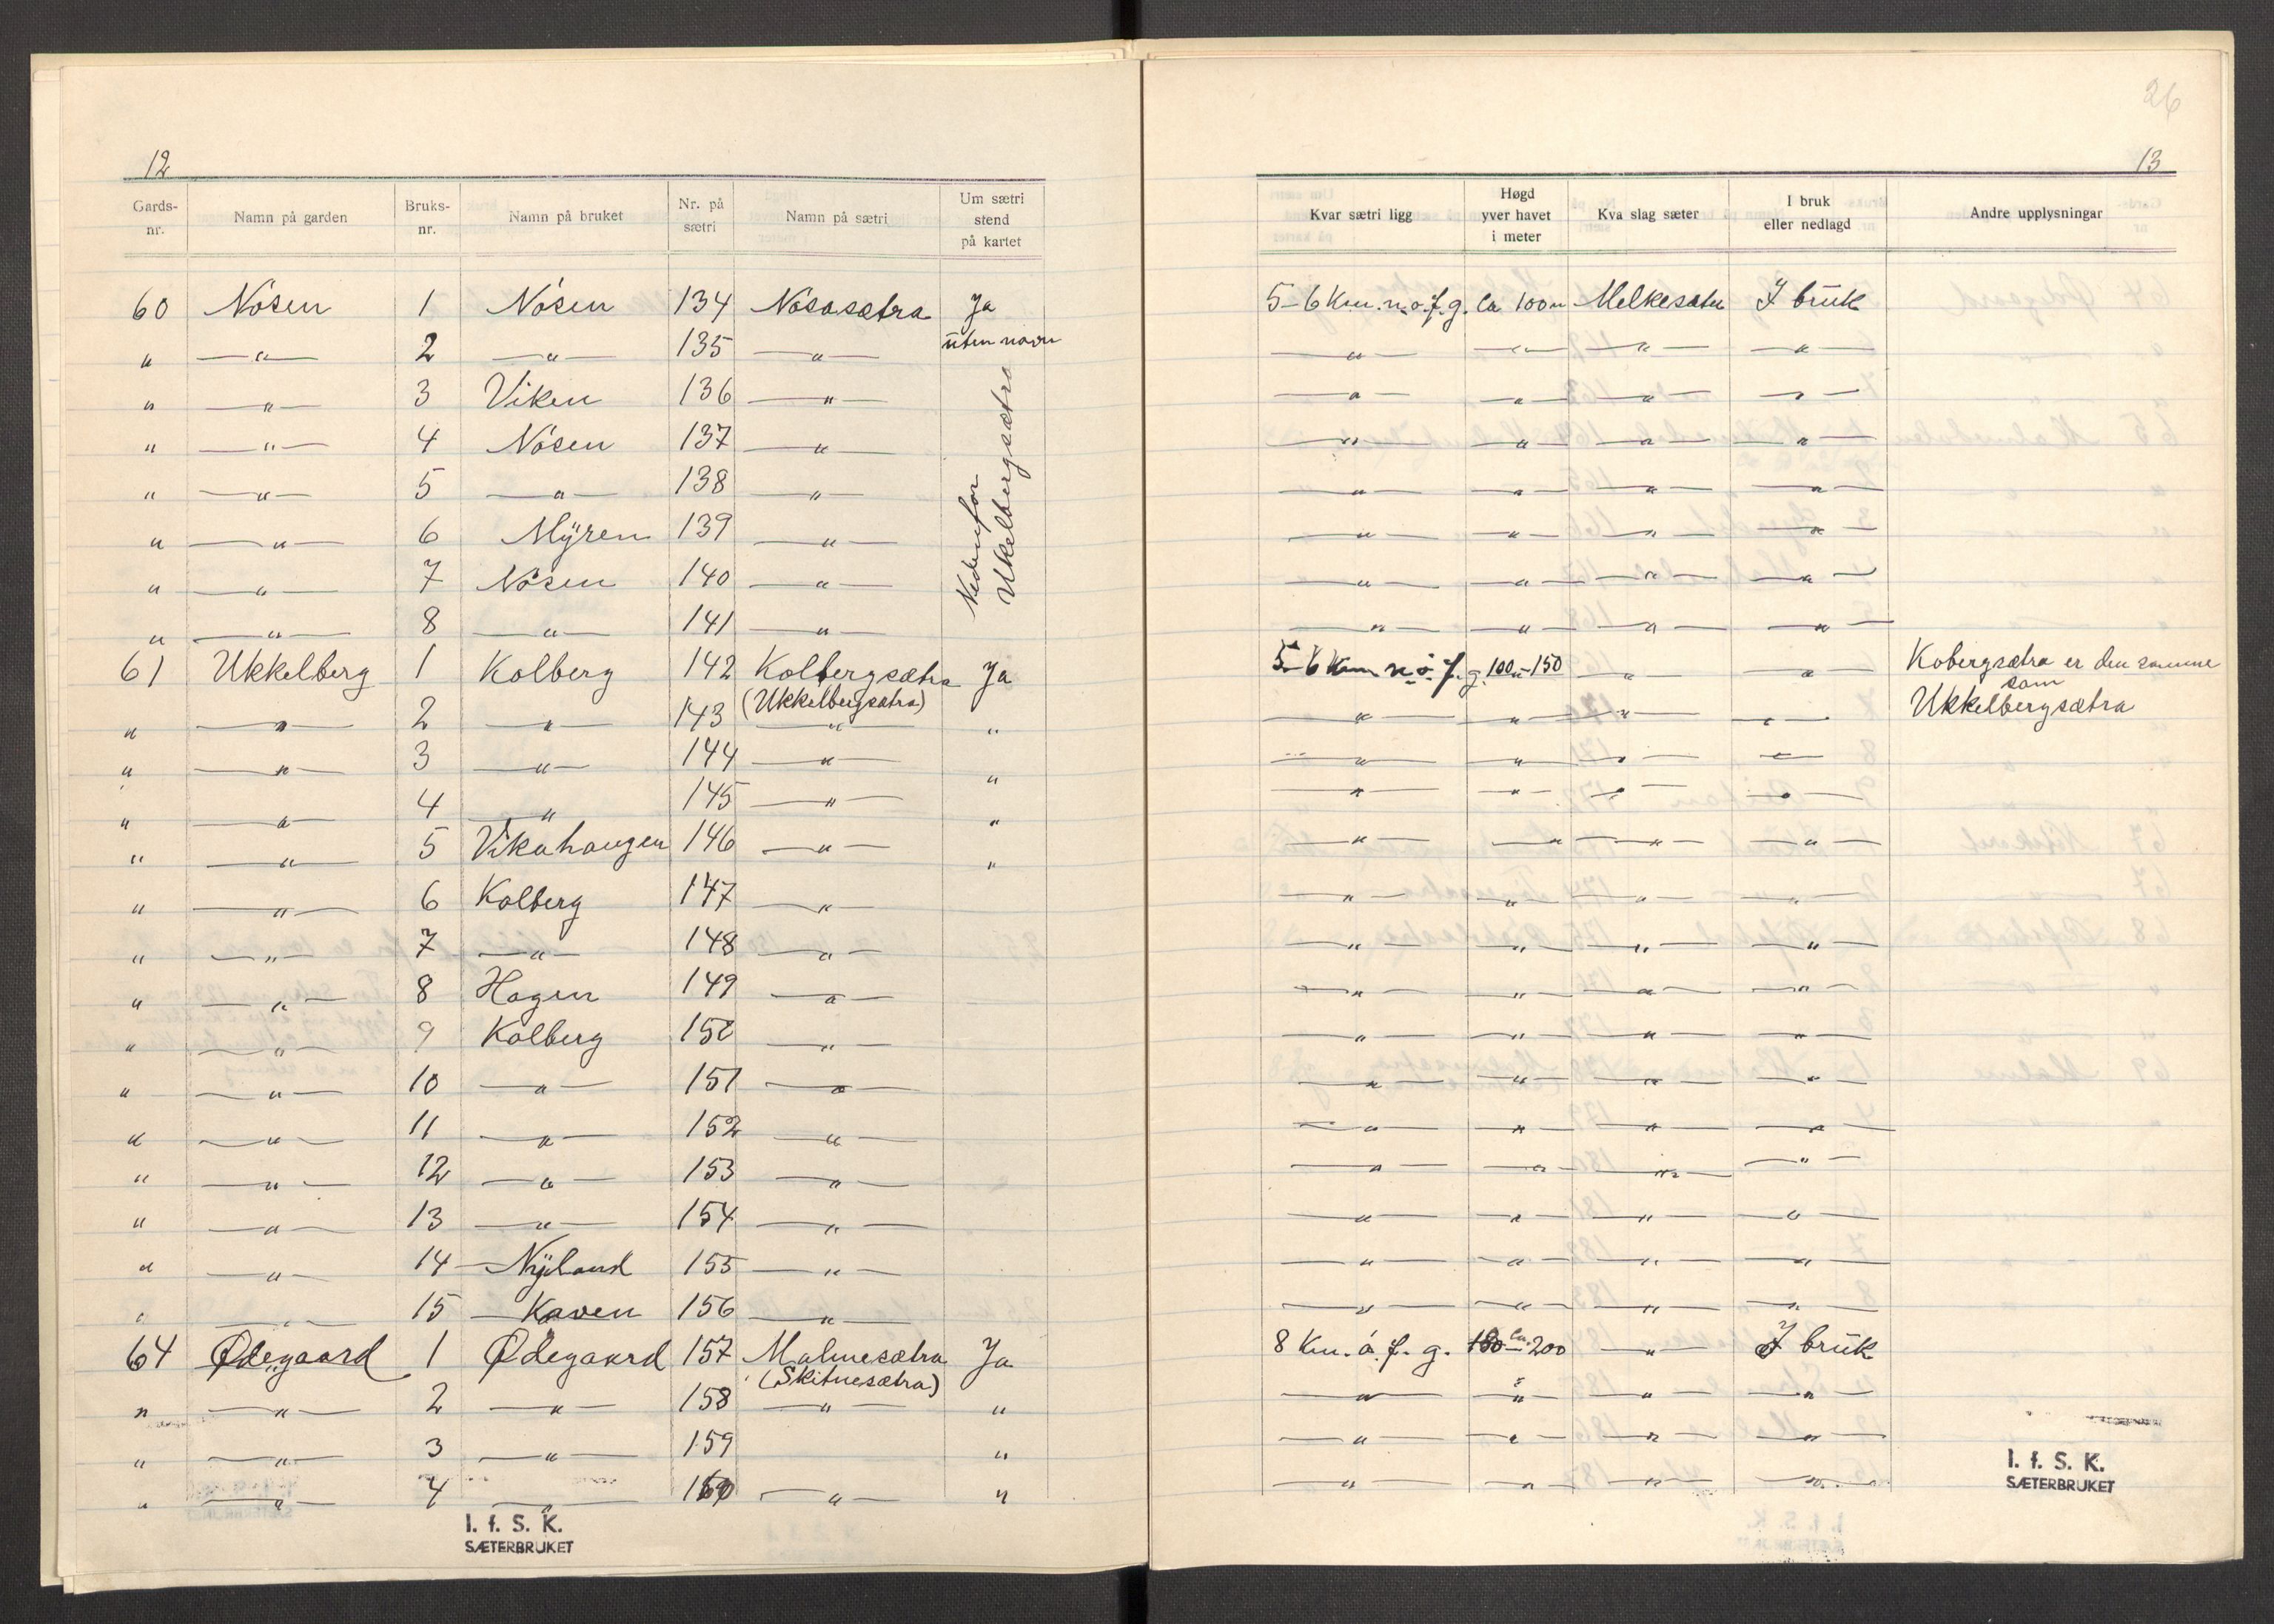 12
Gards-nr. Namn på garden Bruks-nr. Namn på bruket Nr. på sætri Namn på sætri Um sætri stend på kartet
60 Nösen 1 Nösen 134 Nösasætra Ja
" — " — 2 — " — 135 — " — uten navn
" — " — 3 Viken 136 — " —
" — " — 4 Nösen 137 — " —
" — " — 5 — " — 138 — " —
" — " — 6 Myren 139 — " —
" — " — 7 Nösen 140 — " —
" — " — 8 — " — 141 — " —
Nedenfor
Ukkelbergsætra
61 Ukkelberg 1 Kolberg 142 Kolbergsætra Ja
(Ukkelbergsætra)
" — " — 2 — " — 143 — " — "
" — " — 3 — " — 144 — " — "
" — " — 4 — " — 145 — " — "
" — " — 5 Vikahaugen 146 — " — "
" — " — 6 Kolberg 147 — " —
" — " — 7 — " — 148 — " —
" — " — 8 Hagen 149 — " —
" — " — 9 Kolberg 150 — " —
" — " — 10 — " — 151 — " —
" — " — 11 — " — 152 — " —
" — " — 12 — " — 153 — " —
" — " — 13 — " — 154 — " —
" — " — 14 Nyland 155 — " —
" — " — 15 Kaven 156 — " —
64 Ødegaard 1 Ødegaard 157 Malmesætra Ja
(Skitnesætra)
" — " — 2 — " — 158 — " — "
" — " — 3 — " — 159 "
" — " — 4 — " — 160 — " — "
I. f. S. K.
SÆTERBRUKET
26
13
Kvar sætri ligg Høgd yver havet i meter Kva slag sæter I bruk eller nedlagd Andre upplysningar
5-6 Km. n.ö.f.g. ca 100 m Melkesæter I bruk
— " — — " — — " — — " —
— " — — " — — " — — " —
— " — — " — — " — — " —
— " — — " — — " — — " —
— " — — " — — " — — " —
— " — — " — — " — — " —
— " — — " — — " — — " —
5-6 Km n.ö.f.g. 100-150 — " — — " — Kobergsætra er den samme
som
— " — — " — — " — — " — Ukkelbergsætra
— " — — " — — " — — " —
— " — — " — — " — — " —
— " — — " — — " — — " —
— " — — " — — " — — " —
— " — — " — — " — — " —
— " — — " — — " — — " —
— " — — " — — " — — " —
— " — — " — — " — — " —
— " — — " — — " — — " —
— " — — " — — " — — " —
— " — — " — — " — — " —
— " — — " — — " — — " —
— " — — " — — " — — " —
8 Km. ö. f. g. ca. 200 — " — I bruk
— " — " — " — — " —
— " — — " — — " — — " —
— " — — " — — " — — " —
I. f. S. K.
SÆTERBRUKET